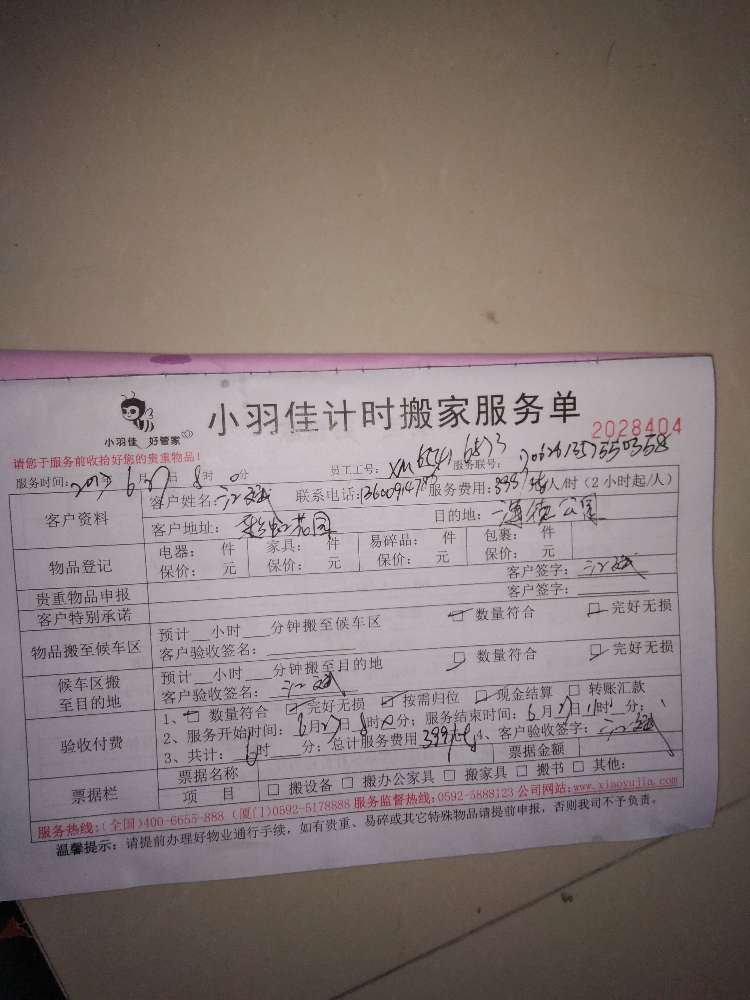 小羽佳 好管家
小羽佳计时搬家服务单
2028404
请您于服务前收拾好您的贵重物品!
员工工号: XM6541 6573 服务联号:
服务时间: 6月27日8时0分
客户资料
客户姓名: 联系电话: 服务费用: 人/时(2小时起/人)
客户地址: 花园 目的地: 公寓
物品登记
电器: 件 家具: 件 易碎品: 件 包裹: 件
保价: 元 保价: 元 保价: 元 保价: 元
贵重物品申报 客户签字:
客户特别承诺 客户签字:
物品搬至候车区
预计__小时___分钟搬至候车区 数量符合 完好无损
客户验收签名:
候车区搬至目的地
预计__小时___分钟搬至目的地 数量符合 完好无损
客户验收签名:
验收付费
1、 数量符合 完好无损 按需归位 现金结算 转账汇款
2、服务开始时间: 6月27日8时0分; 服务结束时间: 6月27日 时 分;
3、共计: 6时 分; 总计服务费用 399 4、客户验收签字:
票据栏
票据名称 票据金额
项 目 搬设备 搬办公家具 搬家具 搬书 其他:
服务热线:(全国)400-6655-888 (厦门)0592-5178888 服务监督热线:0592-5888123 公司网站:www.xiaoyujia.com
温馨提示: 请提前办理好物业通行手续,如有贵重、易碎或其它特殊物品请提前申报,否则我司不予负责。